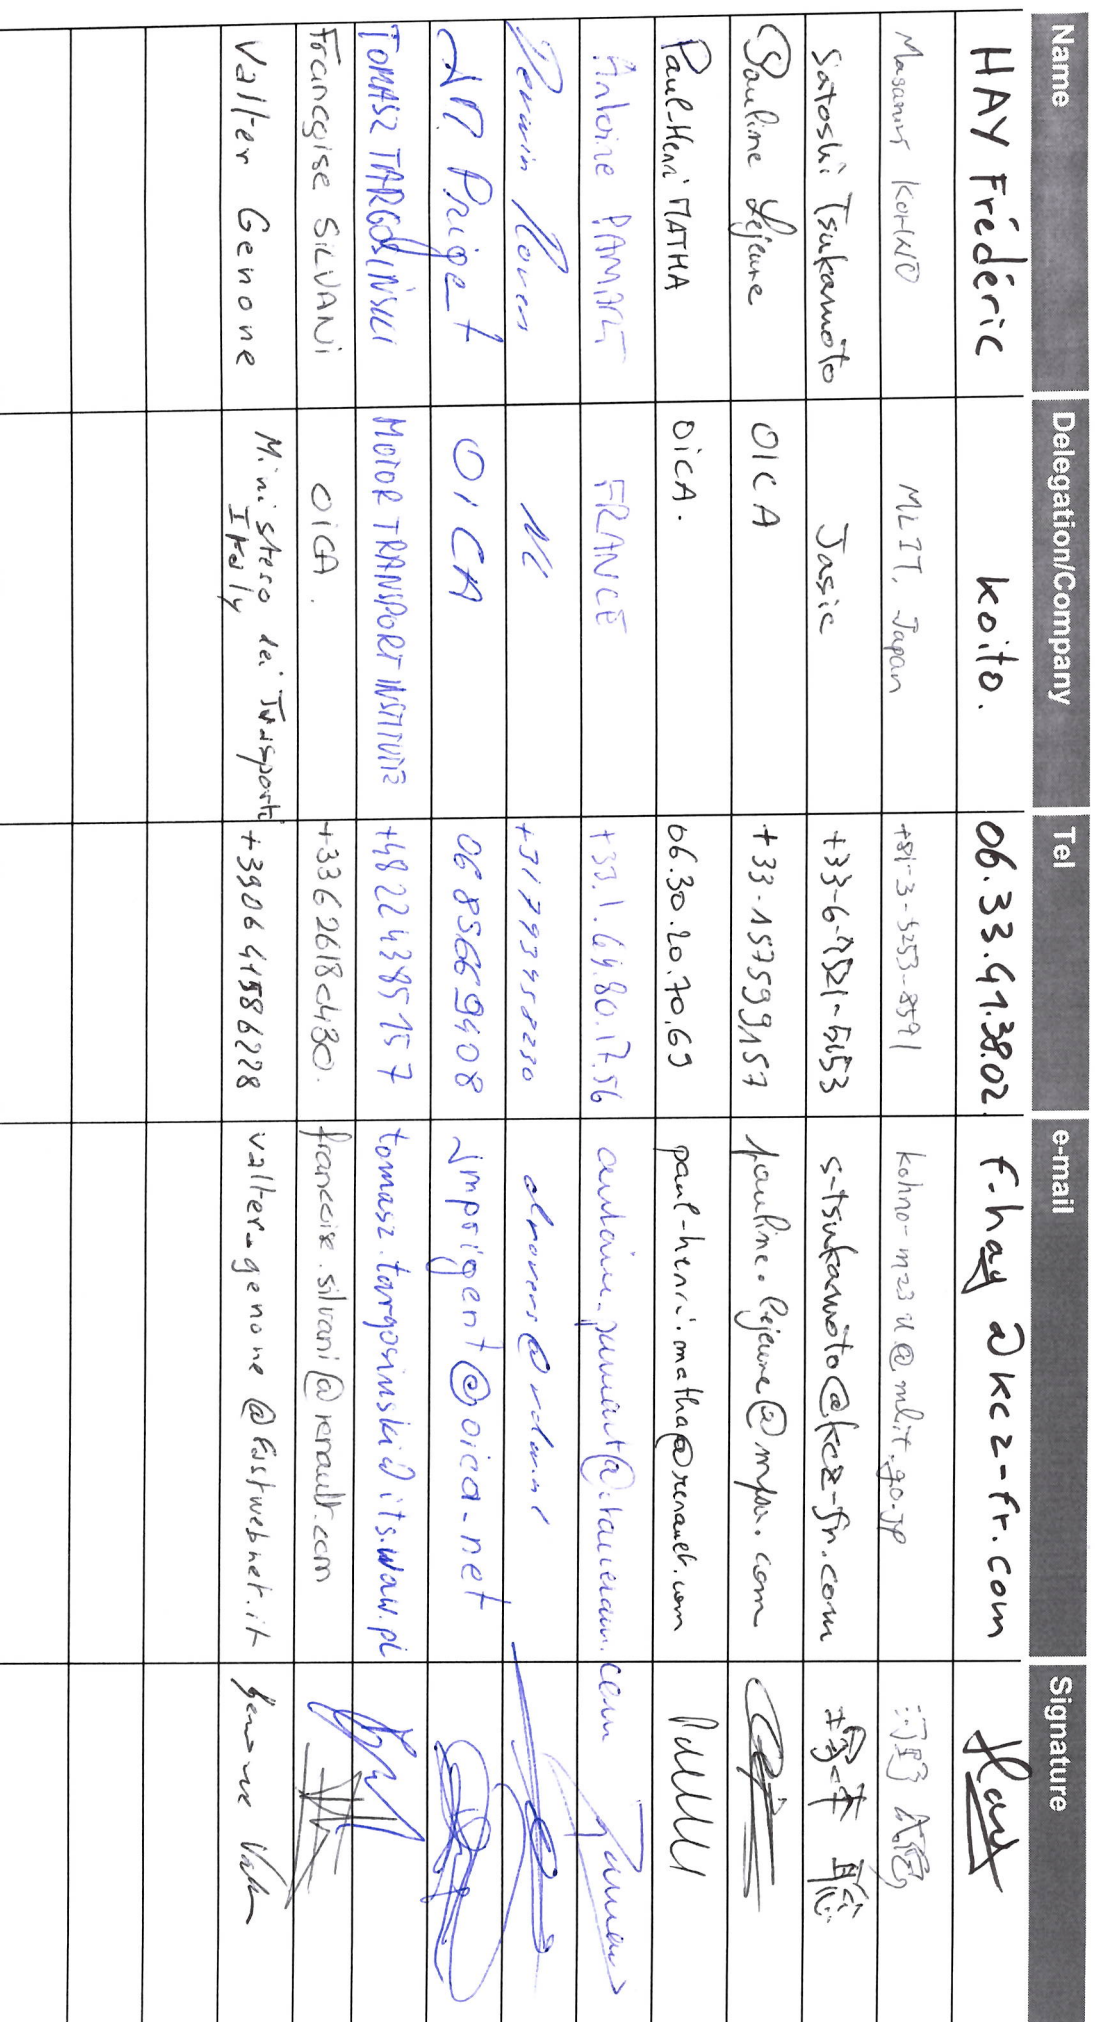 Name Delegation/Company Tel e-mail Signature
HAY Frédéric koito. 06.33.41.38.02. f.hay@kcz-fr.com
Masanori KOHNO MLIT, Japan +81-3-5253-8591 @mlit.go.jp 河野
Satoshi Tsukamoto Jasic s-tsukamoto@kcz-fr.com 塚本 聡
Pauline Lejeune OICA +33-157599157 pauline.lejeune@mpsa.com
Paul-Henri MATHA OICA. 06.30.20.70.69 paul-henri.matha@renault.com
Antoine PAMART FRANCE +33.1.69.80.17.56
NL +31793458230
Prigent OICA 0685669408 jmprigent@oica.net
TOMASZ TARGOSIŃSKI MOTOR TRANSPORT INSTITUTE +48224385157 tomasz.targosinski@its.waw.pl
Françoise SILVANI OICA. francoise.silvani@renault.com
Valter Genone Ministero dei Trasporti +390641586228 valter.genone@fastwebnet.it Genone
Italy